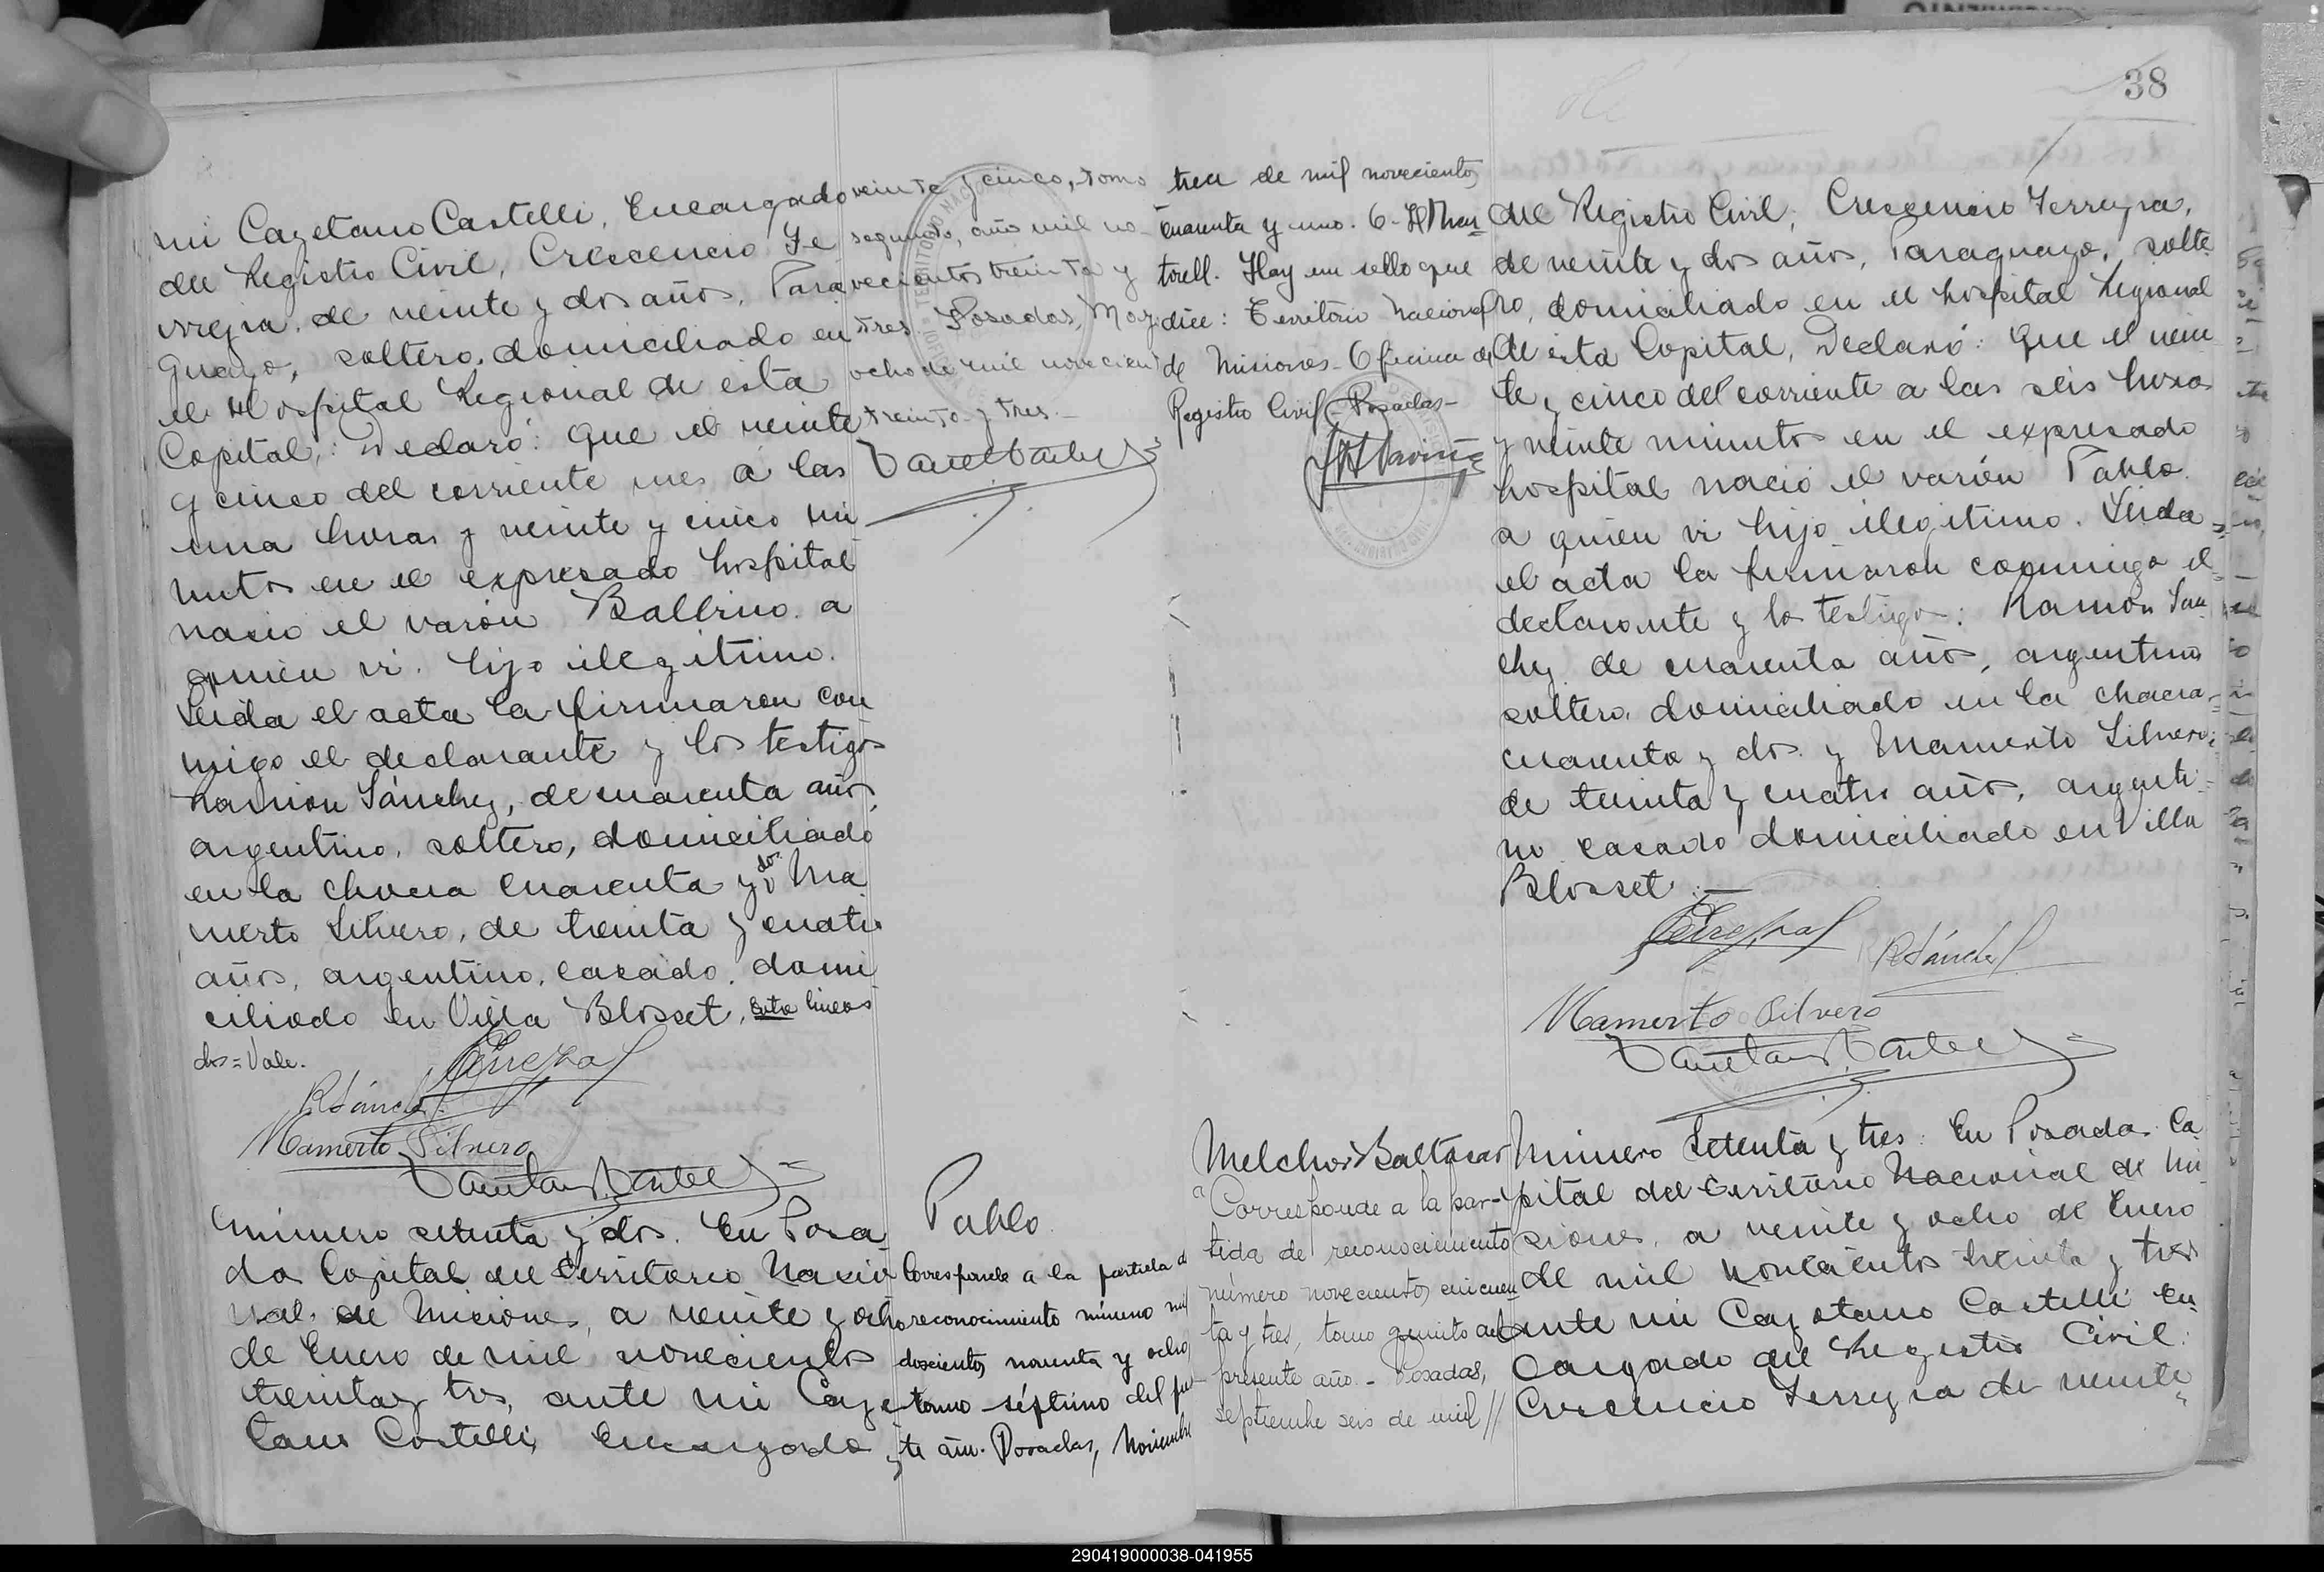 38
mi Cayetano Castelli, Encargado
del Registro Civil, Crescencio Fe
rreyra, de veinte y dos años, Para
guayo, soltero, domiciliado en
el Hospital Regional de esta
Capital,: Declaró: Que el veinte
y cinco del corriente mes a las
una horas y veinte y cinco mi
nutos en el expresado hospital
nació el varón Balbino a
quien vi. hijo ilegitimo.
Leida el acta la firmaron con
migo el declarante y los testigos
Ramón Sánchez, de cuarenta años,
argentino, soltero, domiciliado
en la chacra cuarenta y dos Ma
merto Silvero, de treinta y cuatro
años, argentino, casado, domi
ciliado en Villa Blosset, entre lineas
dos=Vale.
Ferreyra
RSánchez
Mamerto Silvero
Cayetano Castelli
veinte y cinco, tomo
segundo, año mil no-
vecientos treinta y
tres. Posadas, Mayo
ocho de mil novecien
treinta y tres.-
Número setenta y dos. En Posa
das Capital del Territorio Nacio
nal de Misiones, a veinte y ocho
de Enero de mil novecientos
treinta y tres, ante mi Caye
tano Castelli, Encargado
Pablo.
Corresponde a la partida de
reconocimiento número mil
doscientos noventa y ocho
tomo séptimo del pre
te año. Posadas, Noviembre
trece de mil novecientos
cuarenta y uno.
torell. Hay un sello que
dice: Territorio Nacional
de Misiones - Oficina del
Registro Civil - Posadas-
del Registro Civil, Crescencio Ferreyra,
de veinte y dos años, Paraguayo, solte
ro, domiciliado en el hospital Regional
de esta Capital, Declaró: Que el vein
te y cinco del corriente a las seis horas
y veinte minutos en el expresado
hospital nació el varón Pablo
a quien vi hijo ilegitimo. Leida
el acta la firmaron conmigo el
declarante y los testigos: Ramón San
chez de cuarenta años, argentino
soltero, domiciliado en la chacra
cuarenta y dos y Mamerto Silvero,
de treinta y cuatro años, argenti
no casado domiciliado en Villa
Blosset.-
Ferreyra
RSánchez
Mamerto Silvero
Cayetano Castelli
Melchor Baltasar
"Corresponde a la par-
tida de reconocimiento
número novecientos cincuen
ta y tres, tomo quinto del
presente año.- Posadas,
septiembre seis de mil //
Número Setenta y tres: En Posadas Ca
pital del Territorio Nacional de Mi
siones, a veinte y ocho de Enero
de mil novecientos treinta y tres
ante mi Cayetano Castelli En
cargado del Registro Civil:
Crescencio Ferreyra de veinte
290419000038-041955